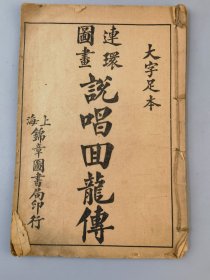 大字足本
連環
圖畫
說唱回龍傳
上海
錦章圖書局印行